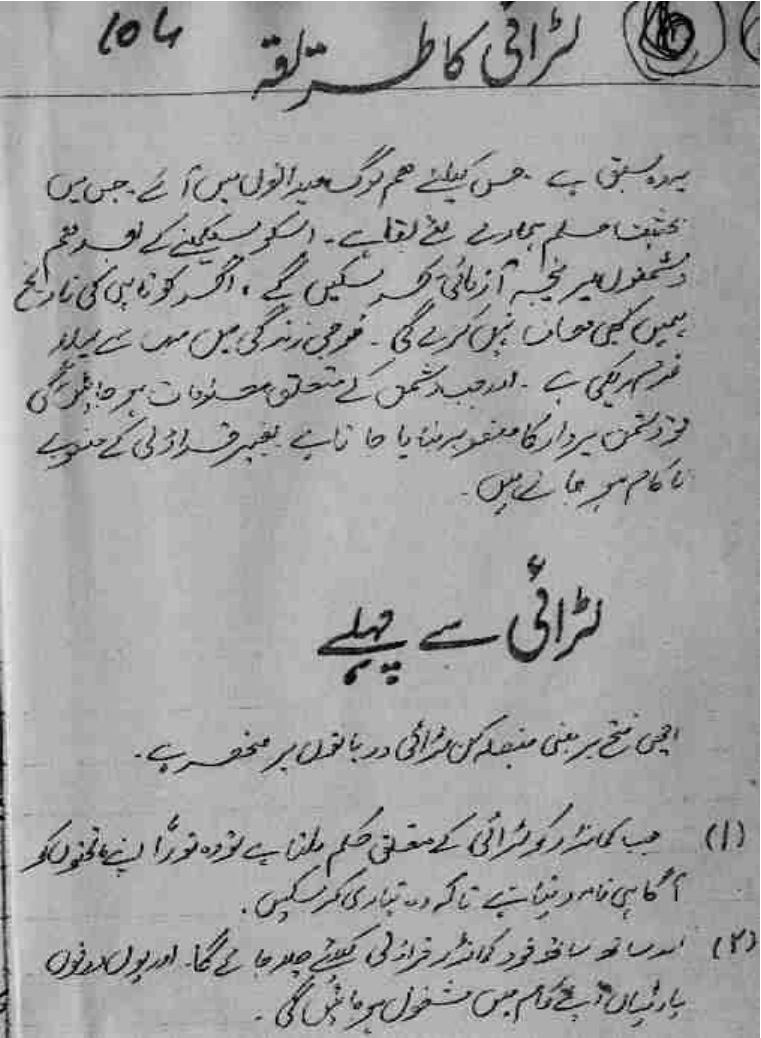 104 لڑائی کا طریقہ
یہ وہ سبق ہے۔ جس کیلئے ہم لوگ میدانوں میں آئے۔ جس میں
بحیثیت مسلم ہمارے لئے بقا ہے۔ اسکو سیکھنے کے بعد ہم
دشمنوں پر پنجہ آزمائی کر سکیں گے، اگر کوتاہی کی تاریخ
ہمیں کبھی معاف نہیں کرے گی۔ فوجی زندگی میں سب سے پہلا
قدم ریکی ہے۔ اور جب دشمن کے متعلق معلومات ہو جائیں گی
تو دشمن پر وار کا منصوبہ بنایا جاتا ہے بغیر قراولی کے منصوبے
ناکام ہو جاتے ہیں۔
لڑائی سے پہلے
اچھی فتح پر مبنی فیصلہ کن لڑائی دو باتوں پر منحصر ہے۔
(۱) جب کمانڈر کو لڑائی کے متعلق حکم ملتا ہے تو وہ فوراً اپنے ماتحتوں کو
آگاہی نامہ دیتا ہے تاکہ وہ تیاری کر سکیں۔
(۲) اور ساتھ ساتھ خود کمانڈر قراولی کیلئے چلا جائے گا۔ اور یوں دونوں
پارٹیاں اپنے کام میں مشغول ہو جائیں گی۔